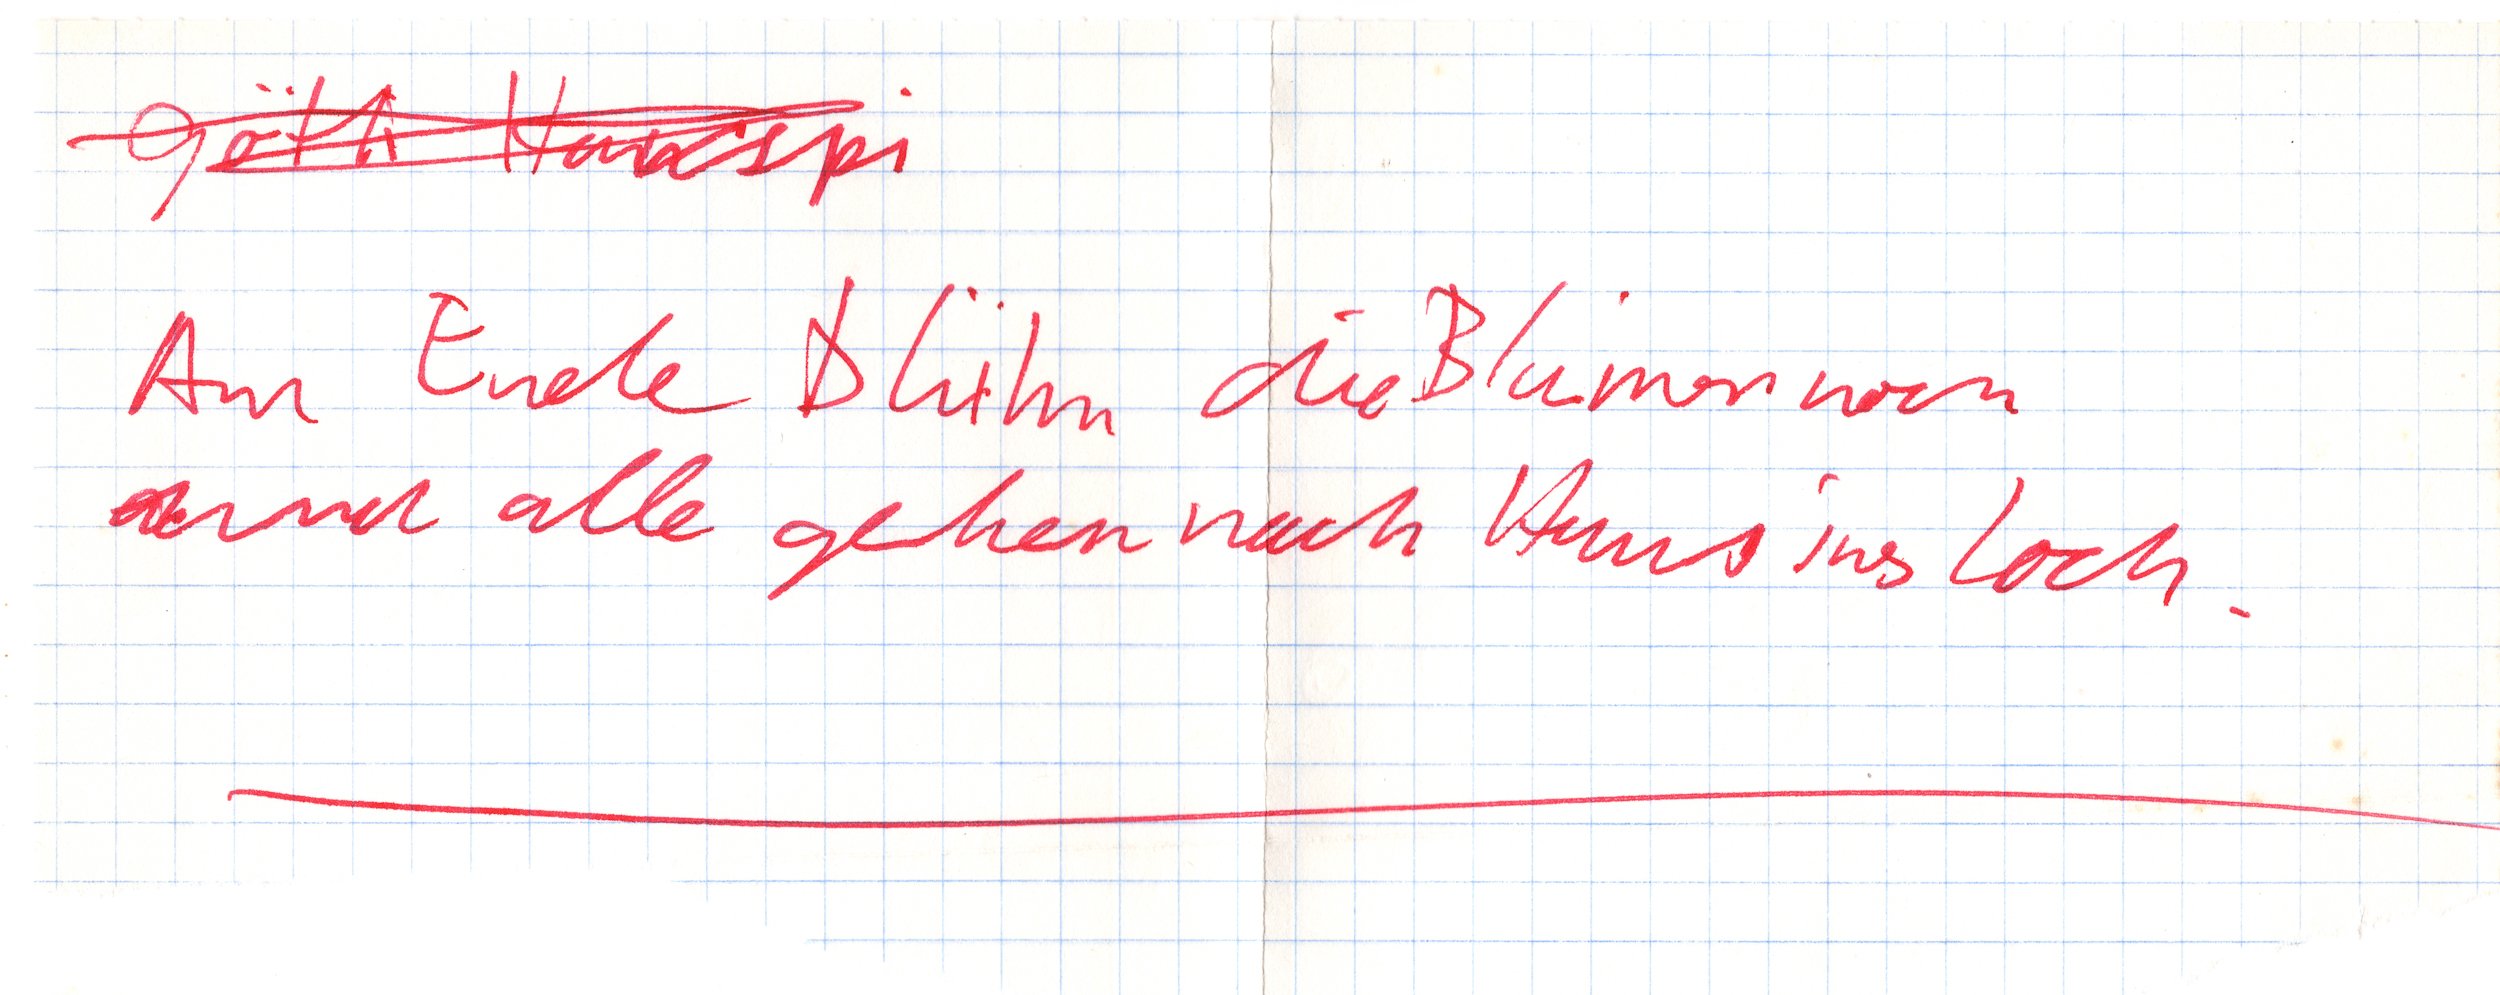 Götti Hansispi
Am Ende blühn die Blumen
und alle gehen nach Haus ins Loch.